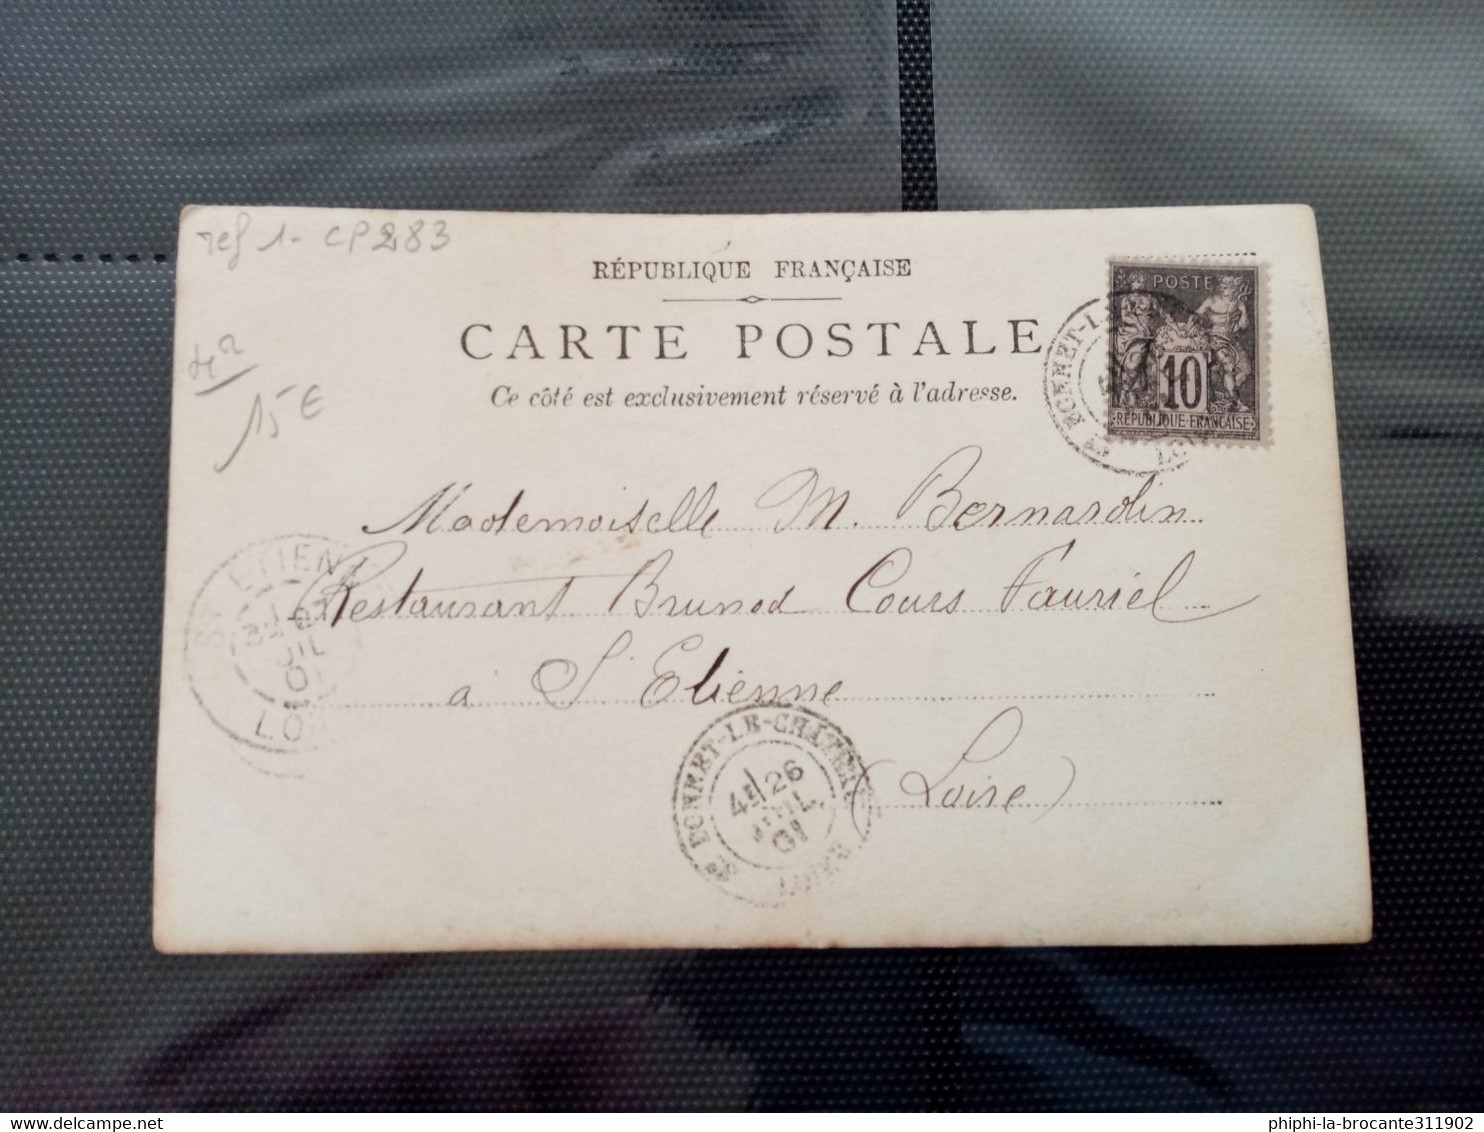 ref 1- CP283
RÉPUBLIQUE FRANÇAISE
CARTE POSTALE
Ce côté est exclusivement réservé à l'adresse.
15€
POSTE
10
RÉPUBLIQUE FRANÇAISE
Mademoiselle M. Bernardin
Restaurant Brunod Cours Fauriel
à St Etienne
(Loire)
ST ETIENNE
LOIRE
St BONNET-LE-CHATEAU
26
JUIL
01
LOIRE
phiphi-la-brocante311902